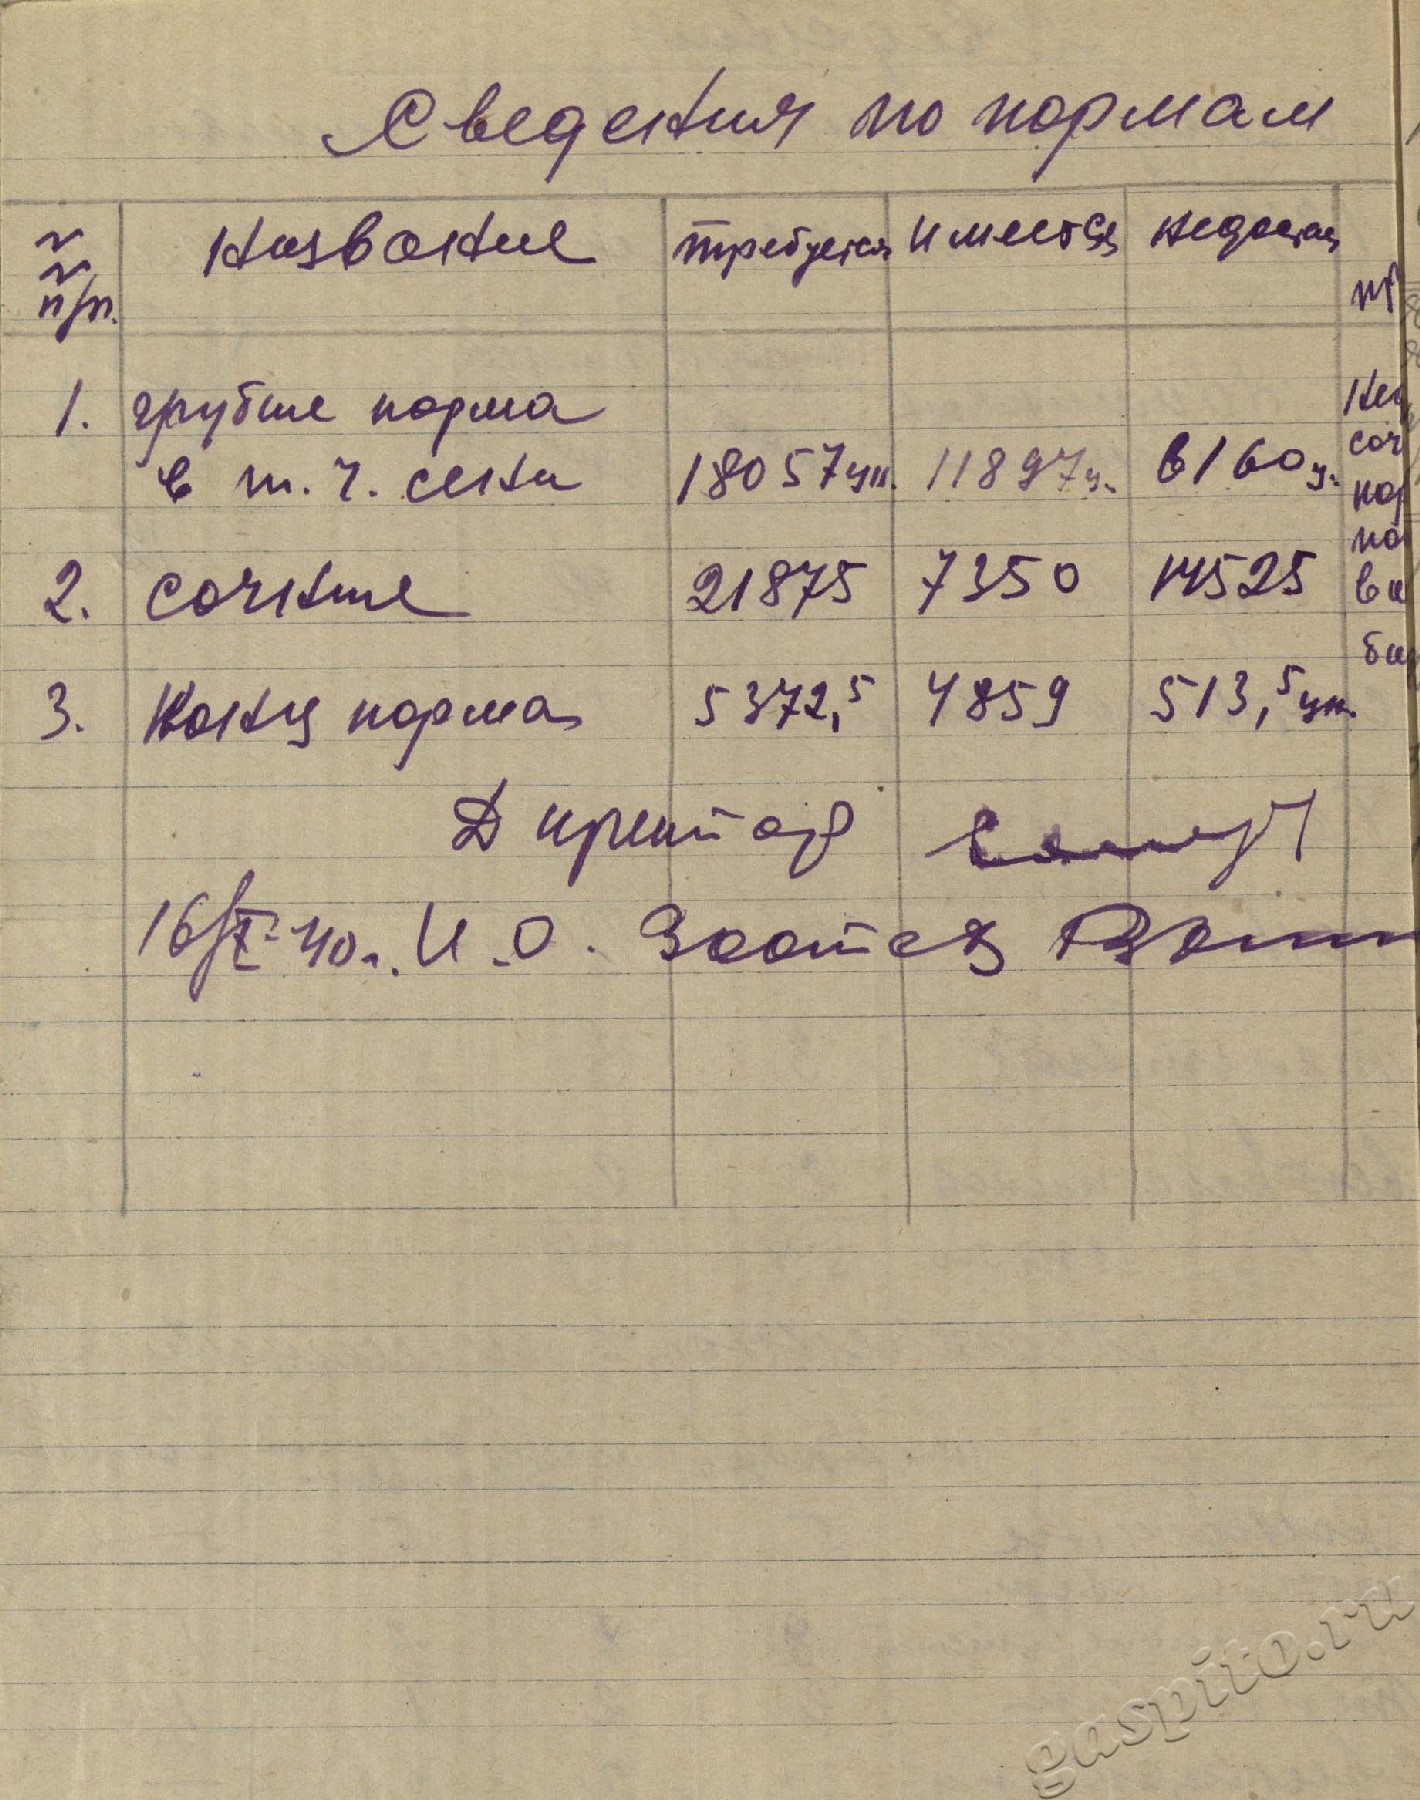 Сведения по кормам
№№ п/п. Название требуется имеется недостае пр
1. грубые корма
в т. ч. сена 18057 цн. 11897 ц. 6160 ц.
2. сочные 21875 7350 14525
3. Конц корма 5372,5 4859 513,5 цн.
Не
соч
кор
по
ва
бы
Директор
16/X-40 г. И.О. Зоотех
gaspito.ru